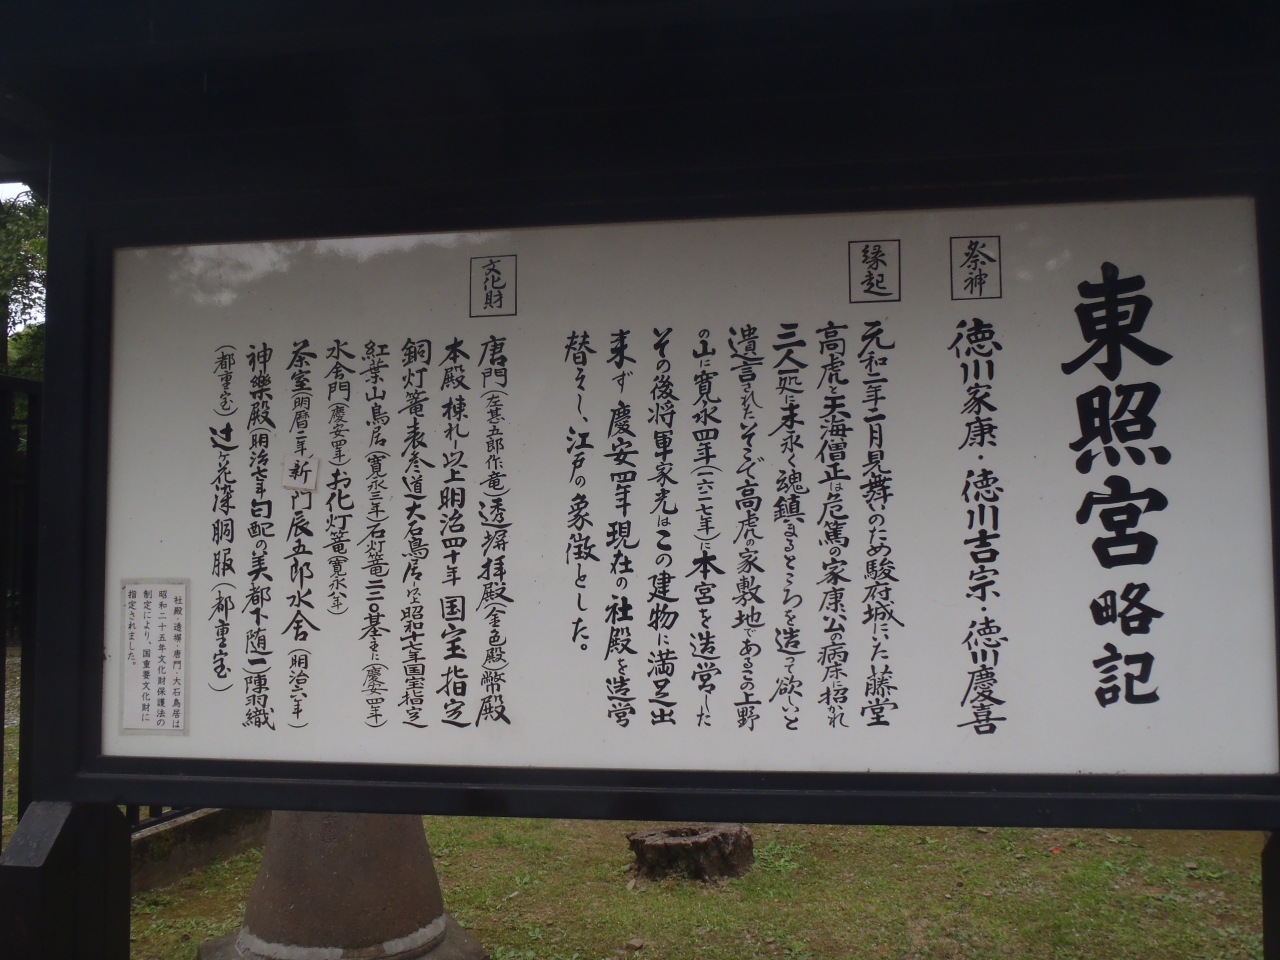 東照宮略記
祭神
徳川家康・徳川吉宗・徳川慶喜
縁起
元和二年二月見舞いのため駿府城にいた藤堂
高虎と天海僧正は危篤の家康公の病床に招かれ
三人一処に末永く魂鎮まるところを造って欲しいと
遺言されたそこで高虎の家敷地であるこの上野
の山に寛永四年(一六二七年)に本宮を造営した
その後将軍家光はこの建物に満足出
来ず慶安四年現在の社殿を造営
替えし、江戸の象徴とした。
文化財
唐門(左甚五郎作竜)透塀拝殿(金色殿)幣殿
本殿棟札以上明治四十年国宝指定
銅灯篭表参道大石鳥居以上昭和十七年国宝指定
紅葉山鳥居(寛永三年)石灯篭二二〇基主に(慶安四年)
水舎門(慶安四年)お化灯篭(寛永八年)
茶室(明暦二年)新門辰五郎水舎(明治六年)
神樂殿(明治七年勾配の美都下随一)陣羽織
(都重宝)辻ヶ花染胴服(都重宝)
社殿・透塀・唐門・大石鳥居は
昭和二十五年文化財保護法の
制定により、国重要文化財に
指定されました。